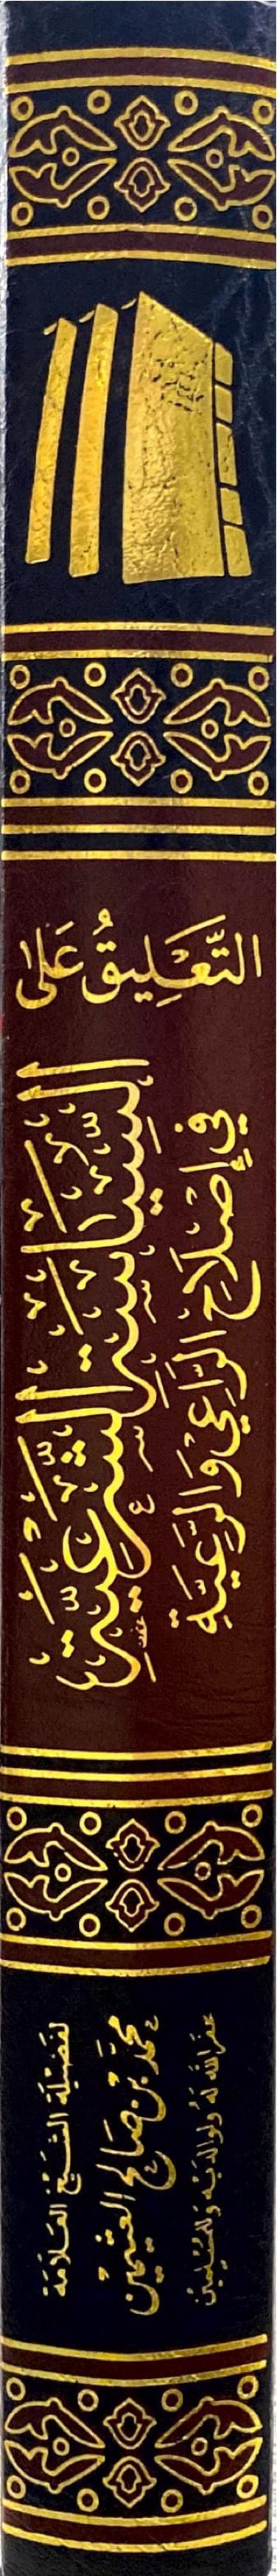 التَّعْلِيقُ عَلَى
السِّيَاسَةِ الشَّرْعِيَّةِ
فِي إِصْلَاحِ الرَّاعِي وَالرَّعِيَّةِ
لفَضِيلَة الشَّيْخ العَلَّامَة
محمَّد بن صَالح العثيمين
غفَر الله لَهُ ولوَالدَيْه وَللمُسْلِمِين